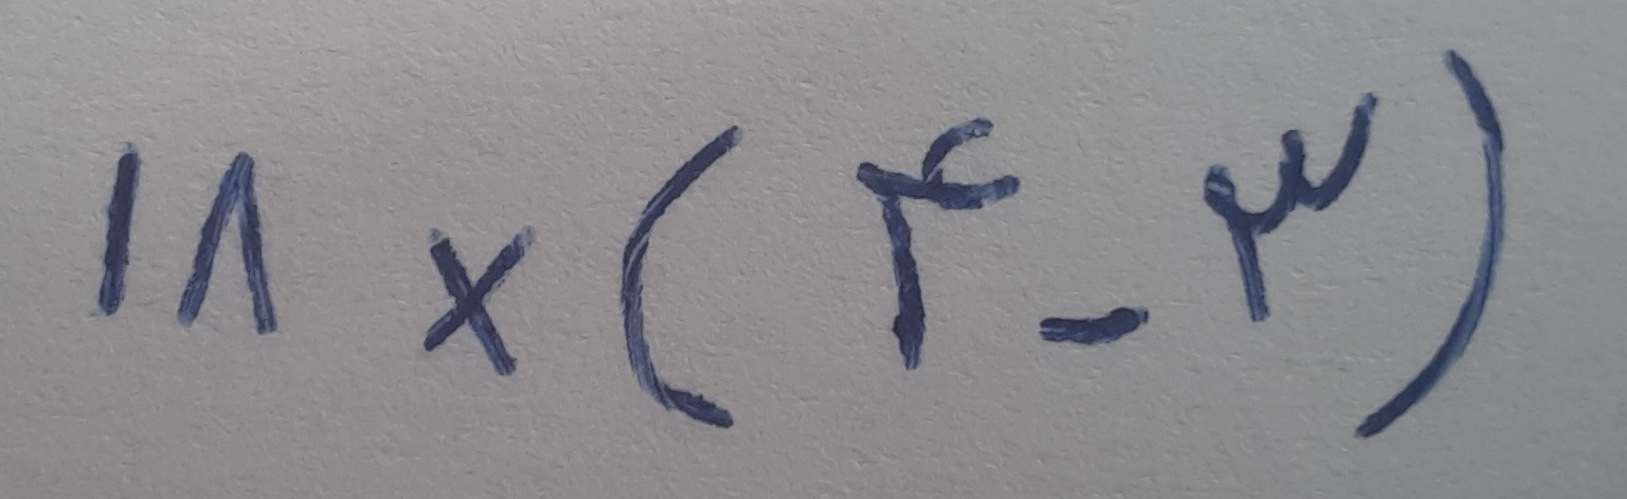 ۱۸ × (۴ - ۳)